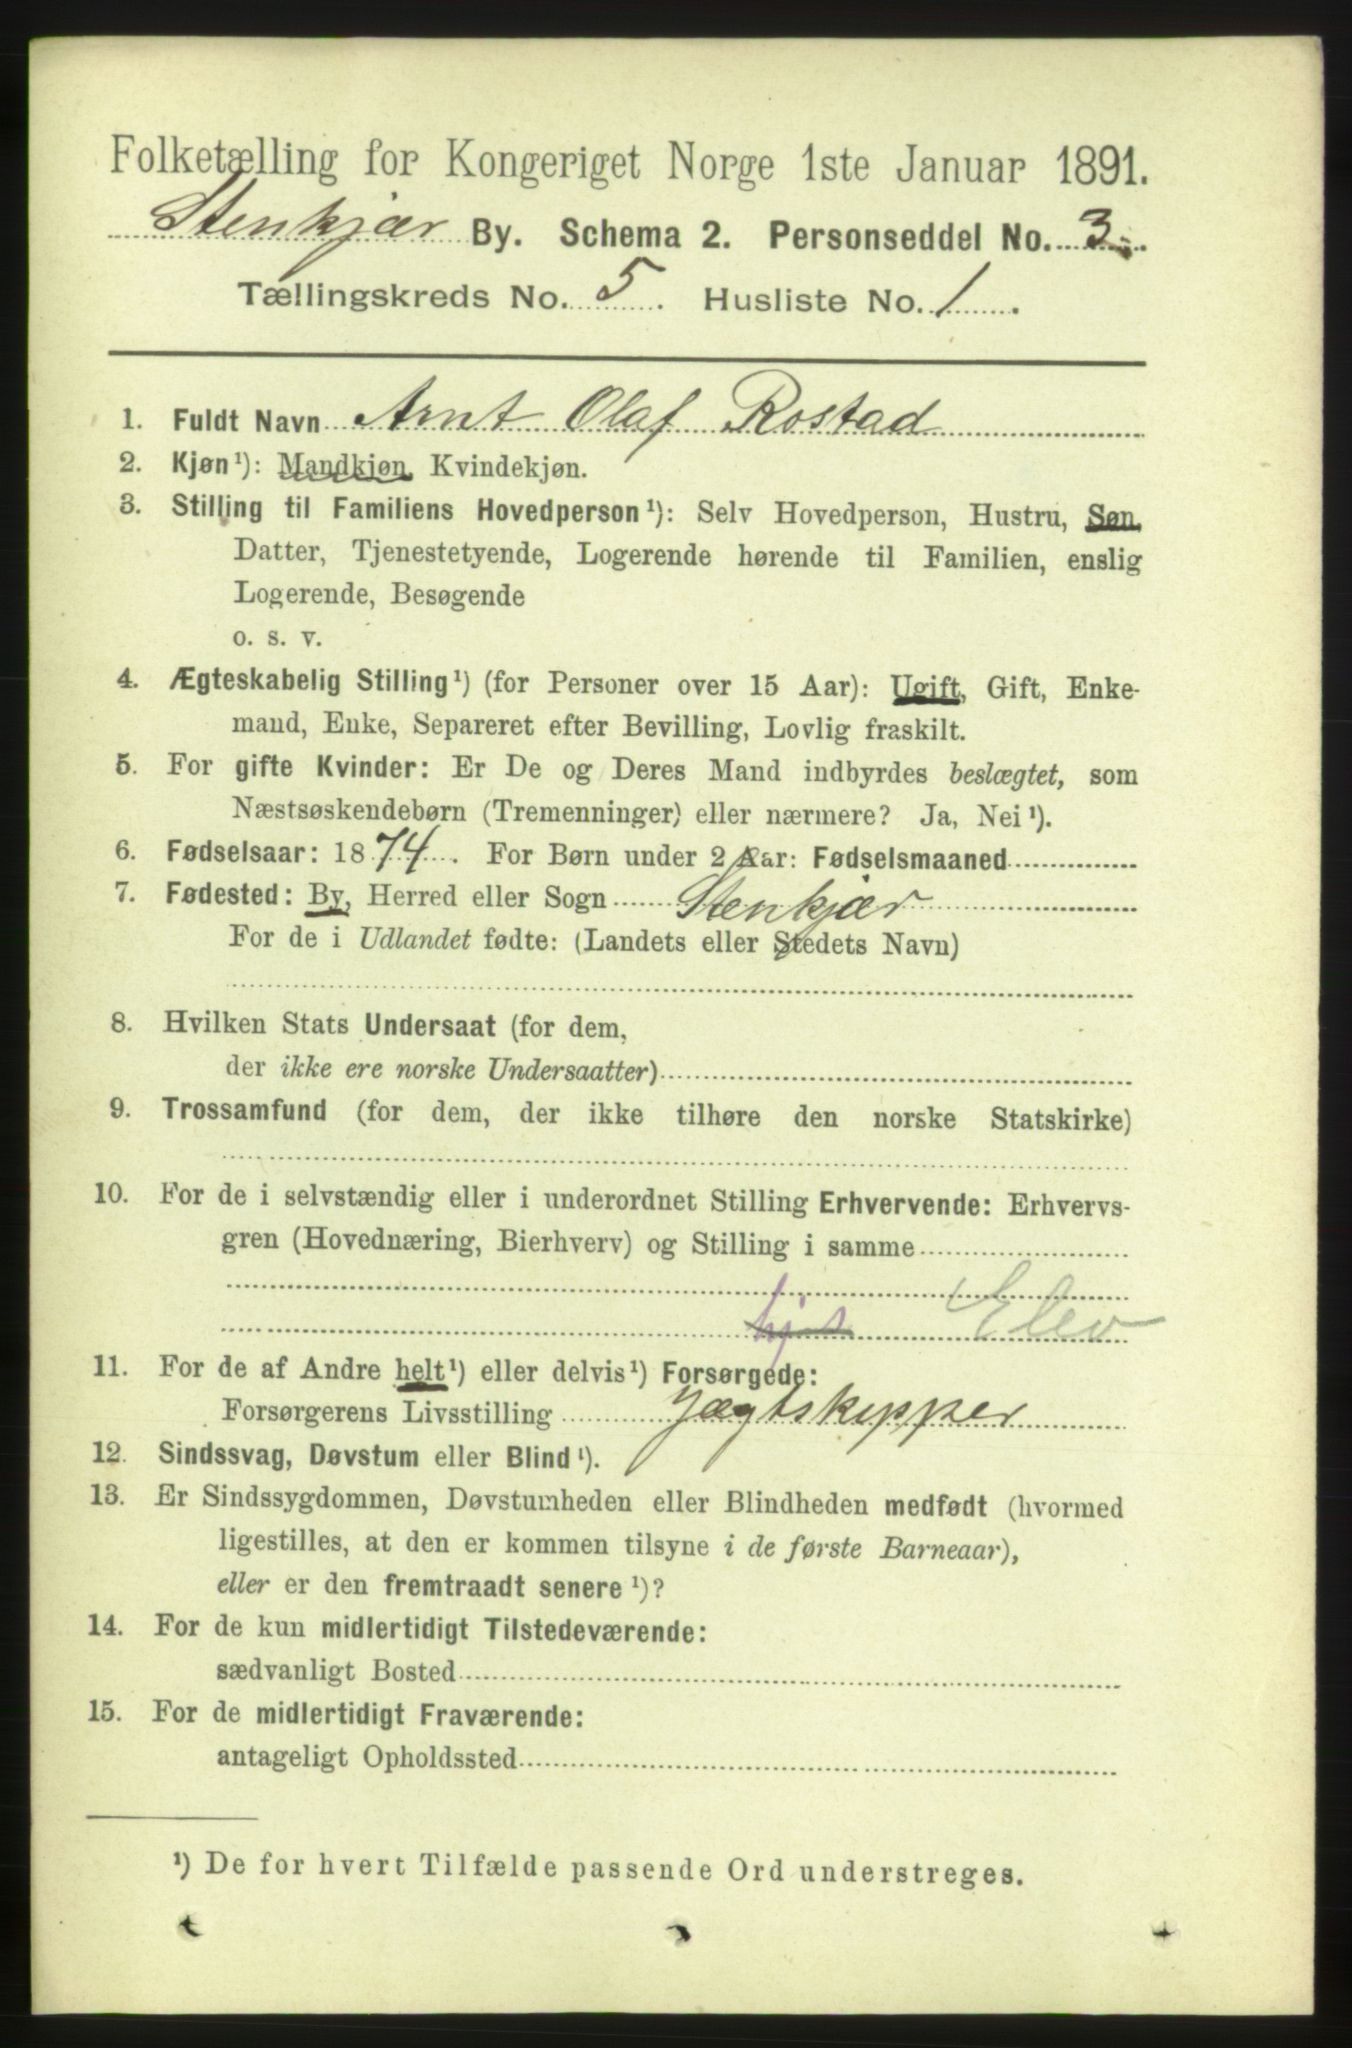 Folketælling for Kongeriget Norge 1ste Januar 1891.
Stenkjær By. Schema 2. Personseddel No. 3.
Tællingskreds No. 5. Husliste No. 1.
1. Fuldt Navn Arnt Olaf Rostad
2. Kjøn¹): Mandkjøn, Kvindekjøn.
3. Stilling til Familiens Hovedperson¹): Selv Hovedperson, Hustru, Søn,
Datter, Tjenestetyende, Logerende hørende til Familien, enslig
Logerende, Besøgende
o. s. v.
4. Ægteskabelig Stilling¹) (for Personer over 15 Aar): Ugift, Gift, Enke-
mand, Enke, Separeret efter Bevilling, Lovlig fraskilt.
5. For gifte Kvinder: Er De og Deres Mand indbyrdes beslægtet, som
Næstsøskendebørn (Tremenninger) eller nærmere? Ja, Nei¹).
6. Fødselsaar: 1874. For Børn under 2 Aar: Fødselsmaaned
7. Fødested: By, Herred eller Sogn Stenkjær
For de i Udlandet fødte: (Landets eller Stedets Navn)
8. Hvilken Stats Undersaat (for dem,
der ikke ere norske Undersaatter)
9. Trossamfund (for dem, der ikke tilhøre den norske Statskirke)
10. For de i selvstændig eller i underordnet Stilling Erhvervende: Erhvervs-
gren (Hovednæring, Bierhverv) og Stilling i samme
Elev
11. For de af Andre helt¹) eller delvis¹) Forsørgede:
Forsørgerens Livsstilling Jægtskipper
12. Sindssvag, Døvstum eller Blind¹).
13. Er Sindssygdommen, Døvstumheden eller Blindheden medfødt (hvormed
ligestilles, at den er kommen tilsyne i de første Barneaar),
eller er den fremtraadt senere¹)?
14. For de kun midlertidigt Tilstedeværende:
sædvanligt Bosted
15. For de midlertidigt Fraværende:
antageligt Opholdssted
¹) De for hvert Tilfælde passende Ord understreges.